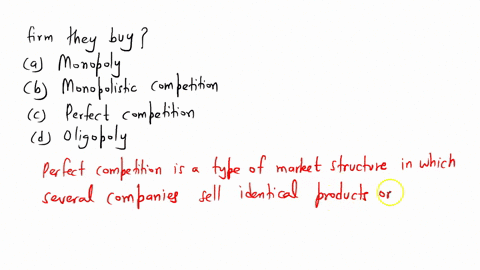 firm they buy?
(a) Monopoly
(b) Monopolistic competition
(c) Perfect competition
(d) Oligopoly
Perfect competition is a type of market structure in which
several companies sell identical products or